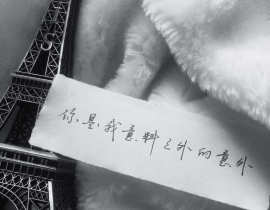 你是我意料之外的意外